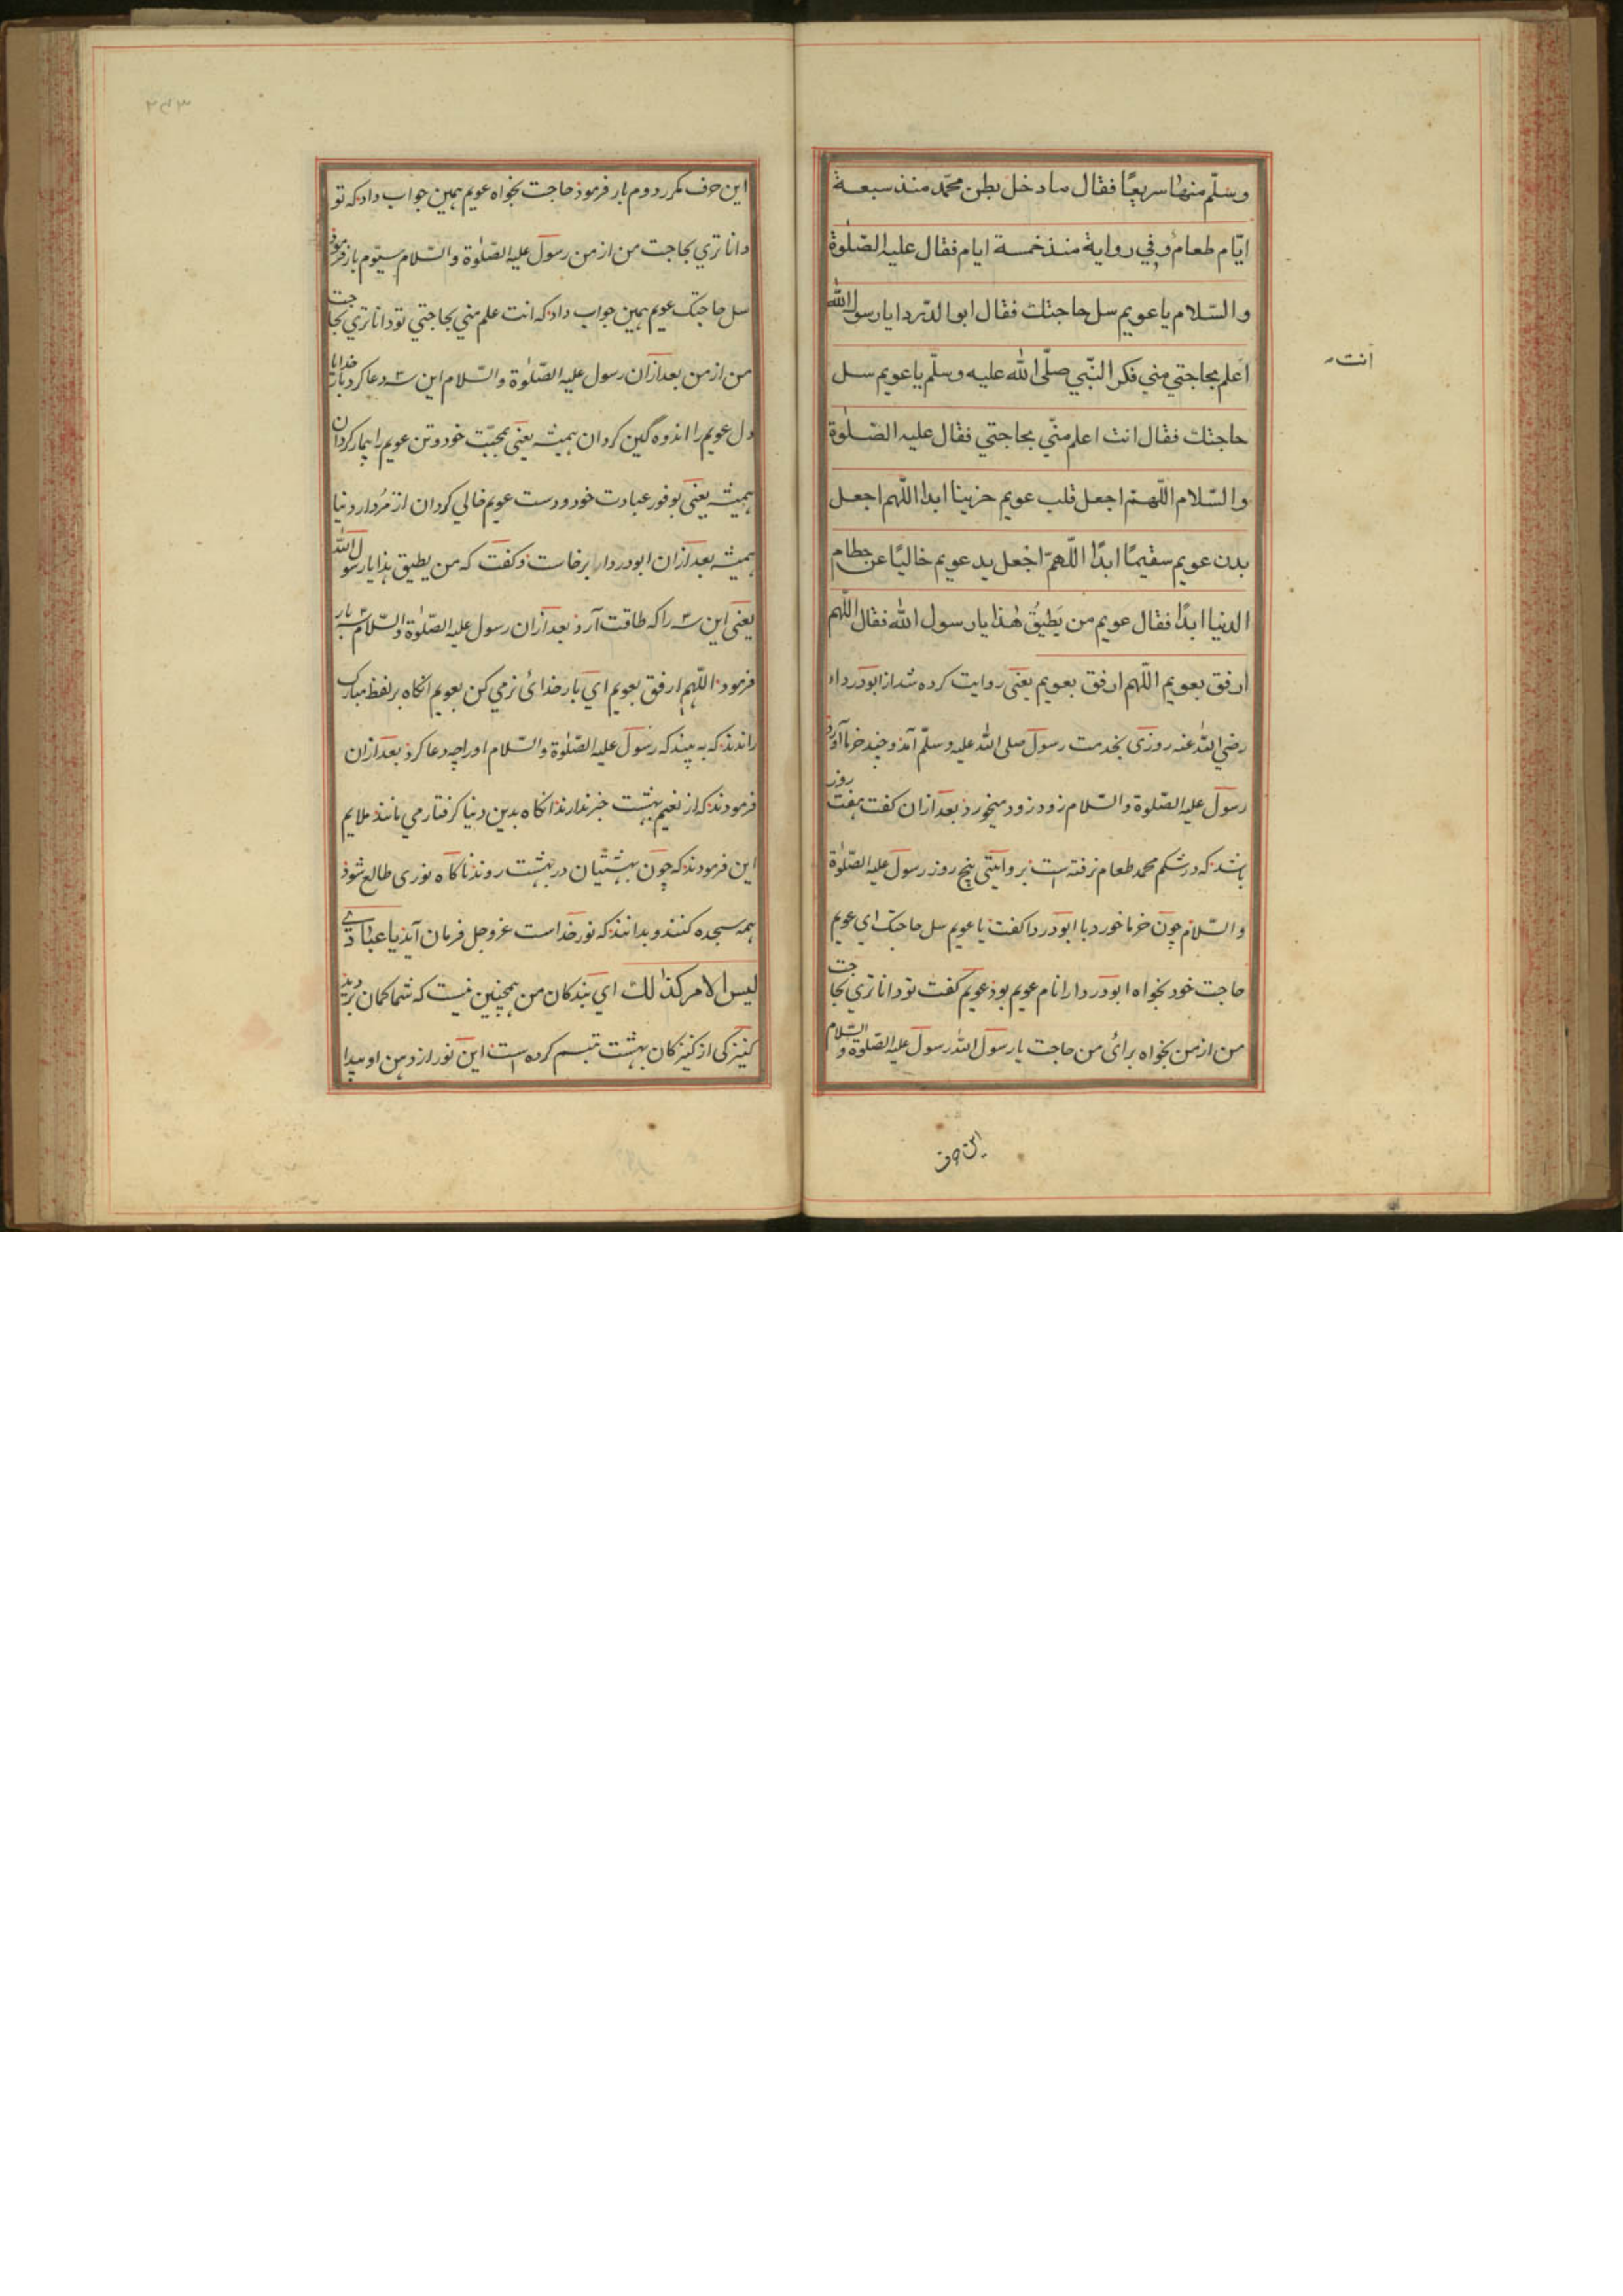 وسلّم منها سريعًا فقال ما دخل بطن محمّد منذ سبعة
ايّام طعام وفي رواية منذ خمسة ايام فقال عليه الصّلوة
والسّلام يا عويم سل حاجتك فقال ابو الدّردا يا رسول الله
انت
اعلم بحاجتي مني فكر النّبي صلّى الله عليه وسلّم يا عويم سل
حاجتك فقال انت اعلم منّي بحاجتي فقال عليه الصّلوة
والسّلام اللّهمّ اجعل قلب عويم حزينا ابدا اللّهم اجعل
بدن عويم سقيمًا ابدًا اللّهمّ اجعل يد عويم خاليًا عن حطام
الدنيا ابدًا فقال عويم من يَطيقُ هٰذا يا رسول الله فقال اللّهم
ارفق بعويم اللّهم ارفق بعويم يعنى روايت كرده شد از ابودرداء
رضي الله عنه روزى بخدمت رسول صلى الله عليه وسلّم آمد و چند خرما آورد
رسول عليه الصّلوة والسّلام زود زود ميخورد بعد ازان كفت هفت روز
باشد كه در شكم محمد طعام نرفته است بروايتى پنج روز رسول عليه الصّلوٰة
والسّلام چون خرما خورد با ابودردا كفت يا عويم سل حاجتك اي عويم
حاجت خود بخواه ابودردا را نام عويم بوذ عويم كفت تو داناتري بحاجت
من از من بخواه براى من حاجت يا رسول الله رسول عليه الصّلوة والسّلام
اين حرف
۲۴۳
اين حرف مكرر دوم بار فرموذ حاجت بخواه عويم همين جواب داد كه تو
داناتري بحاجت من از من رسول عليه الصّلوٰة والسّلام سيوّم بار فرموذ
سل حاجتك عويم همين جواب داد كه انت علم مني بحاجتي تو داناتري بحاجت
من از من بعد ازان رسول عليه الصّلوٰة والسّلام اين سه دعا كرد بار خدايا
دل عويم را اندوه گين كردان هميشه يعنى بمحبّت خود و تن عويم را بيمار كردان
هميشه يعنى بوفور عبادت خود و دست عويم خالي كردان از مُردار دنيا
هميشه بعد ازان ابودردا برخاست و كفت كه من يطيق هذا يا رسول الله
يعنى اين سه را كه طاقت آرد بعد ازان رسول عليه الصّلوٰة والسّلام سه بار
فرمود اللّهم ارفق بعويم اي بار خداى نرمي كن بعويم انكاه بر لفظ مبارك
راندند كه به بينيد كه رسول عليه الصّلوٰة والسّلام او را چه دعا كرد بعد ازان
فرمودند كه از نعيم بهشت خبر ندارند انكاه بدين دنيا كرفتار مي مانند ملايم
اين فرمودند كه چون بهشتيان در بهشت روند ناكاه نورى طالع شوذ
همه سجده كنند و بدانند كه نور خداست عزوجل فرمان آيد يا عبادي
ليس الامر كذالك اي بندكان من همچنين نيست كه شما كمان برديد
كنيزكى از كنيزكان بهشت تبسم كرده است اين نور از دهن او پيدا